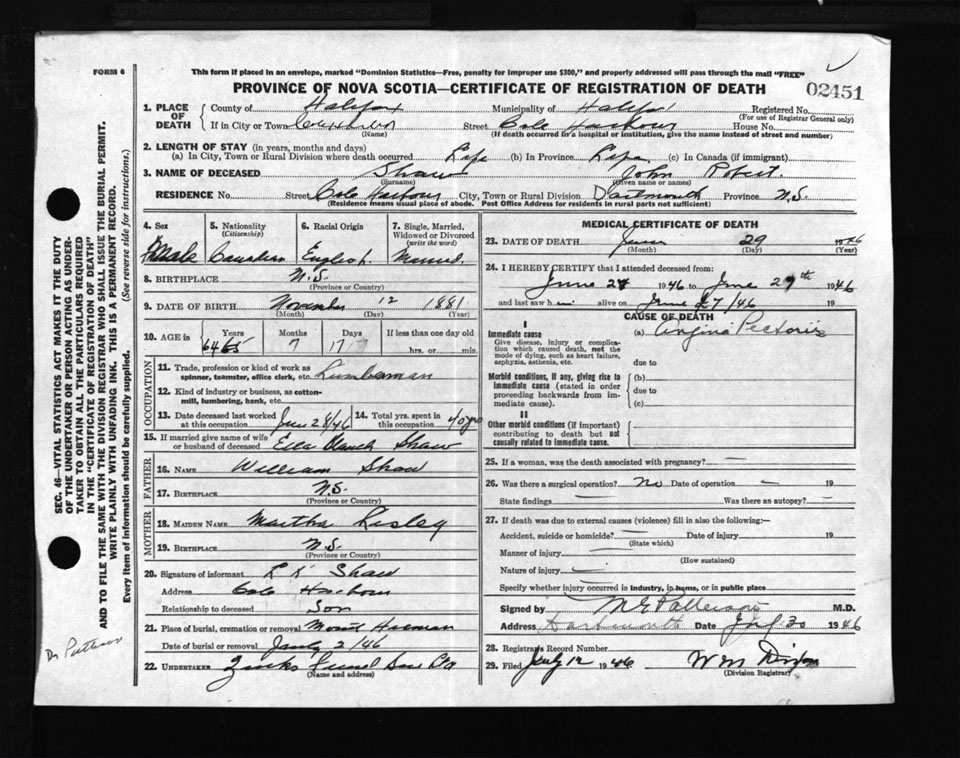 FORM 6
This form if placed in an envelope, marked "Dominion Statistics—Free, penalty for improper use $300," and properly addressed will pass through the mail "FREE"
PROVINCE OF NOVA SCOTIA—CERTIFICATE OF REGISTRATION OF DEATH
02451
1. PLACE OF DEATH
County of Halifax Municipality of Halifax Registered No.
(For use of Registrar General only)
If in City or Town Street Cole Harbour House No.
(Name) (If death occurred in a hospital or institution, give the name instead of street and number)
2. LENGTH OF STAY (in years, months and days)
(a) In City, Town or Rural Division where death occurred Life (b) In Province Life (c) In Canada (if immigrant)
3. NAME OF DECEASED Shaw John Robert.
(Surname) (Given name or names)
RESIDENCE No. Street Cole Harbour City, Town or Rural Division Dartmouth Province N.S.
(Residence means usual place of abode. Post Office Address for residents in rural parts not sufficient)
4. Sex
Male
5. Nationality
(Citizenship)
Canadian
6. Racial Origin
English.
7. Single, Married, Widowed or Divorced
(write the word)
Married.
8. BIRTHPLACE N.S.
(Province or Country)
9. DATE OF BIRTH November 12 1881
(Month) (Day) (Year)
10. AGE in Years Months Days If less than one day old
64 65 7 17 17 hrs. or min.
OCCUPATION
11. Trade, profession or kind of work as spinner, teamster, office clerk, etc. Lumberman
12. Kind of industry or business, as cotton-mill, lumbering, bank, etc.
13. Date deceased last worked at this occupation June 28/46
14. Total yrs. spent in this occupation 40 yrs
15. If married give name of wife or husband of deceased Ella Shaw
FATHER
16. NAME William Shaw
17. BIRTHPLACE N.S.
(Province or Country)
MOTHER
18. MAIDEN NAME Martha Lisley
19. BIRTHPLACE N.S.
(Province or Country)
20. Signature of informant L K Shaw
Address Cole Harbour
Relationship to deceased Son
21. Place of burial, cremation or removal Mount Herman
Date of burial or removal 2/46
22. UNDERTAKER Zinks Funeral
(Name and address)
MEDICAL CERTIFICATE OF DEATH
23. DATE OF DEATH June 29 1946
(Month) (Day)
24. I HEREBY CERTIFY that I attended deceased from:
June 27 1946 to June 29th 1946
and last saw him alive on June 27/46
CAUSE OF DEATH
I
Immediate cause
Give disease, injury or complication which caused death, not the mode of dying, such as heart failure, asphyxia, asthenia, etc.
(a) Angina Pectoris
due to
Morbid conditions, if any, giving rise to immediate cause (stated in order proceeding backwards from immediate cause).
(b)
due to
(c)
II
Other morbid conditions (if important) contributing to death but not causally related to immediate cause.
25. If a woman, was the death associated with pregnancy? —
26. Was there a surgical operation? No Date of operation — 19
State findings — Was there an autopsy? —
27. If death was due to external causes (violence) fill in also the following:—
Accident, suicide or homicide? — Date of injury 19
(State which)
Manner of injury —
(How sustained)
Nature of injury —
Specify whether injury occurred in industry, in home, or in public place
Signed by M G Patterson M.D.
Address Dartmouth Date 30 1946
28. Registrar's Record Number
29. Filed July 12 1946 W M Dixon
(Division Registrar)
SEC. 46—VITAL STATISTICS ACT MAKES IT THE DUTY
OF THE UNDERTAKER OR PERSON ACTING AS UNDER-
TAKER TO OBTAIN ALL THE PARTICULARS REQUIRED
IN THE "CERTIFICATE OF REGISTRATION OF DEATH"
AND TO FILE THE SAME WITH THE DIVISION REGISTRAR WHO SHALL ISSUE THE BURIAL PERMIT.
WRITE PLAINLY WITH UNFADING INK. THIS IS A PERMANENT RECORD.
Every item of information should be carefully supplied. (See reverse side for instructions.)
Dr Patterson